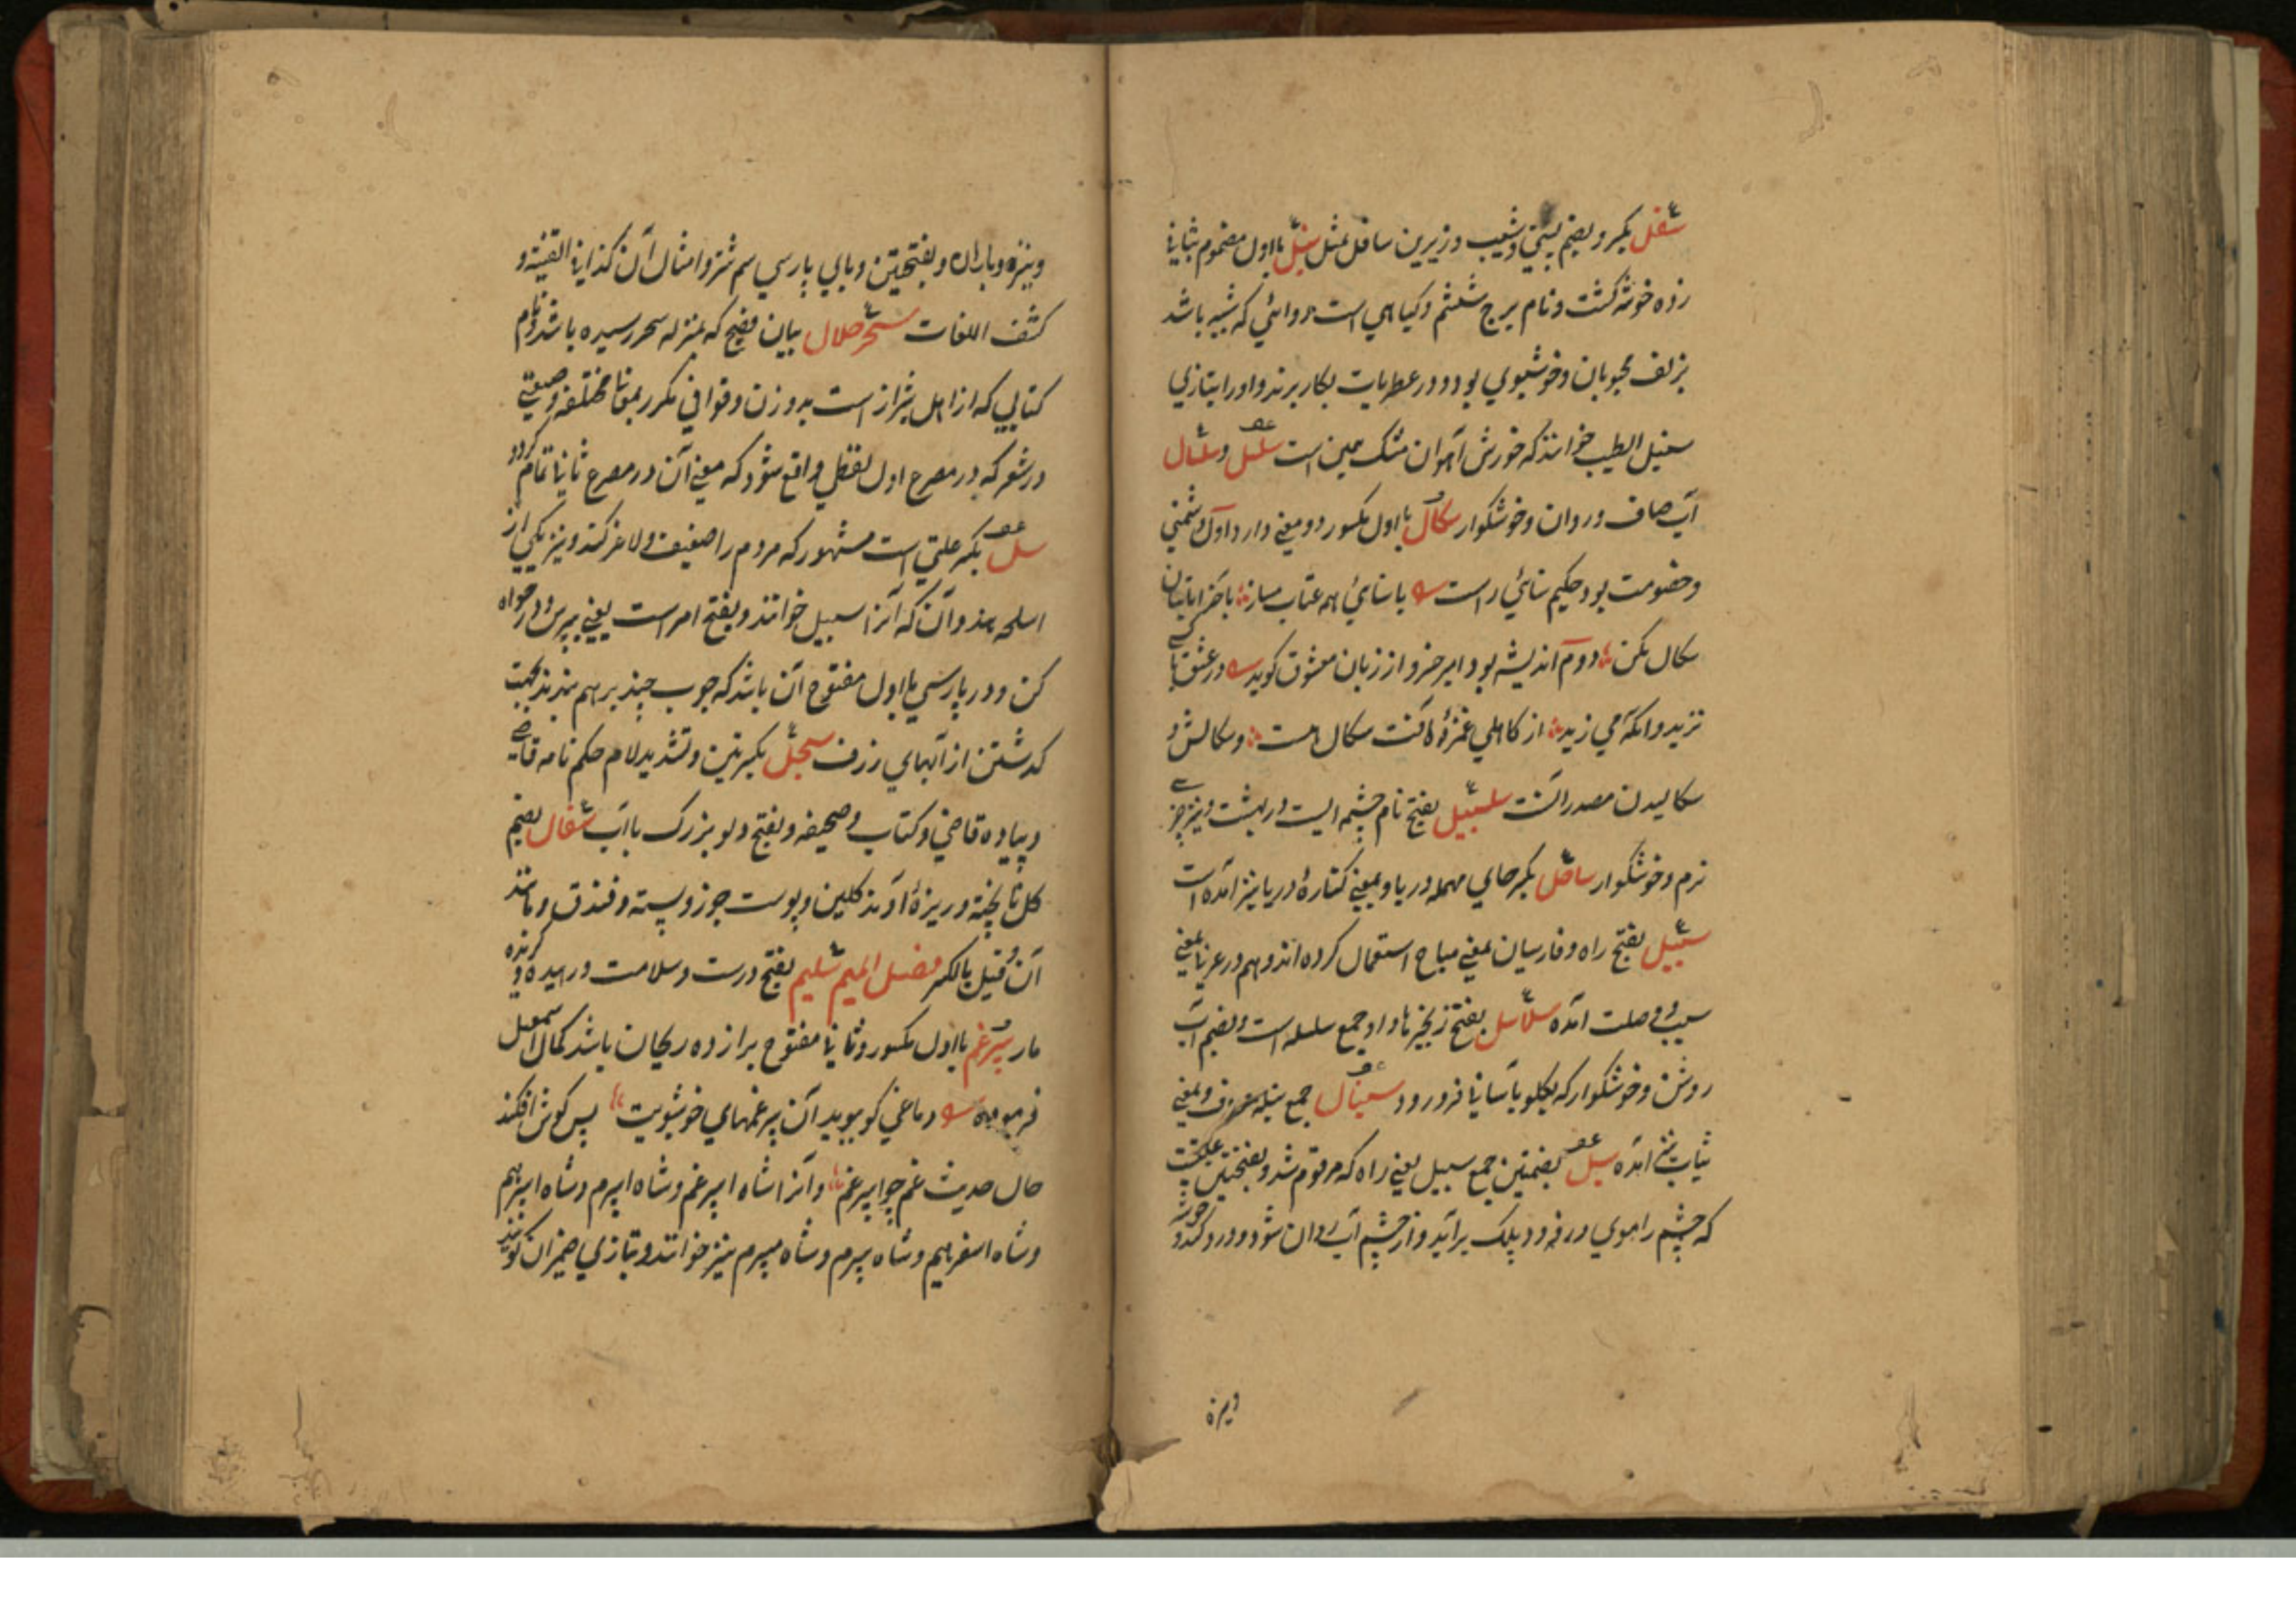 سفل بکسر و بضم پستی و شیب و زیرین سافل مثل سنبل بااول مضموم بثانی
زده خوشه کشت و نام برج ششم و کیاهی است دوائی که شبیه باشد
بزلف محبوبان و خوشبوی بود و در عطریات بکار برند و اورا بتازی
سنبل الطیب خوانند که خورش آهوان مشک همین است سلسل و سلسال
آب صاف و روان و خوشکوار سکال بااول مکسور دو معنی دارد اول دشمنی
و خصومت بود حکیم سنائی راست با سنائی همه عتاب مساز با
سکال مکن دوم اندیشه بود امیر خسرو از زبان معشوق کوید در عشق
تزید وانکه می زید از کاهلی غمزهٔ ماکنت سکال است و سکالش و
سکالیدن مصدر آنست سلسبیل بفتح نام چشمه ایست در بهشت و نیز چیز
نرم و خوشکوار ساحل بکسر حای مهمله دریا و بمعنی کنارهٔ دریا نیز آمده است
سبیل بفتح راه و فارسیان بمعنی مباح استعمال کرده اند و هم در عربی بمعنی
سبب و وصلت آمده سلاسل بفتح زنجیرها و او جمع سلسله است و بضم آب
روشن و خوشکوار که بکلو بآسانی فرو رود سبنال جمع سنبله معروف و بمعنی
آمده سبل بضمتین جمع سبیل یعنی راه که مرقوم شد و بفتحتین علتیست
که چشم را موی در فرود پلک برآید و از چشم آب روان شود و درد کند و
ونیزه
ونیزه و باران و بفتحتین و بای پارسی سم شتر و امثال آن کذا فی القنیه و
کشف اللغات سحر حلال بیان فصیح که بمنزله سحر رسیده باشد و نام
کتابی که از اهل شیراز است بدو وزن و قوافی مکرر بمعانی مختلفه و صنعتی
در شعر که در مصرع اول لفظی واقع شود که معنی آن در مصرع ثانی تمام کردد
سل بکسر علتی است مشهور که مردم را ضعیف و لاغر کند و نیز یکی از
اسلحه هند و آن که آنرا سیل خوانند و بفتح امر است یعنی بپرس و درخواه
کن و در پارسی بااول مفتوح آن باشد که چوب چند بر هم بندند بجهت
کذشتن از آبهای ژرف سجل بکسرتین و تشدید لام حکم نامه قاضی
و پیاده قاضی و کتاب و صحیفه و بفتح دلو بزرک باآب سفال بضم
کل نا پخته و ریزهٔ آوند کلین و پوست جوز و پسته و فندق و مانند
آن و قیل بالکسر فصل المیم سلیم بفتح درست و سلامت و رهیده و کزیده
مار سپرغم بااول مکسور و ثانی مفتوح برا زده ریحان باشد کمال اسمعیل
فرموده دماغی کو ببوید آن سپرغمهای خوشبویت پس کوش افکند
حال حدیث غم چو اسپرغم و آنرا شاه اسپرغم و شاه اسپرم و شاه اسپرهم
و شاه اسفرهم و شاه سپرم و شاه سپرم نیز خوانند و بتازی ضمیران کویند